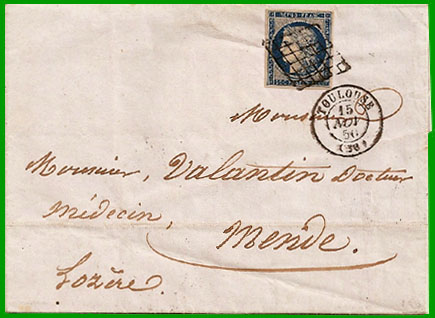 REPUB. FRANC.
TOULOUSE
15
AOUT
50
(30)
Monsieur
Monsieur, Valantin Docteur
Médecin,
Mende.
Lozère.